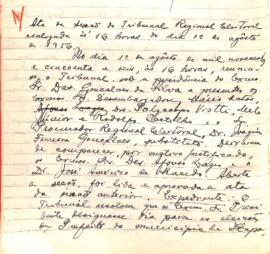 Ata da sessão do Tribunal Regional Eleitoral
realizada às 16 horas do dia 12 de agosto
de 1956
No dia 12 de agosto de mil novecentos
e cincoenta e seis, às 16 horas, reuniu-
se o Tribunal, sob a presidência do Exmo.
Sr. Des. Gonçalves da Silva e presentes os
Exmos. Srs. Desembargador
e Rodolfo e o
Procurador Regional Eleitoral, Dr. Joaquim
Ferreira Gonçalves, substituto. Deixaram
de comparecer, por motivo justificado,
os Exmos. Srs. Des. Afonso e o
Dr. José Américo de Macedo. Aberta
a sessão, foi lida e aprovada a ata
da sessão anterior. Expediente: O
Tribunal resolveu que o Exmo. Sr. Presi-
dente designasse dia para as eleições
de Prefeito do município de